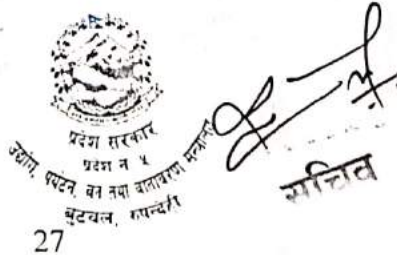 प्रदेश सरकार
प्रदेश नं ५
उद्योग, पर्यटन, वन तथा वातावरण मन्त्रालय
बुटवल, रुपन्देही
सचिव
27